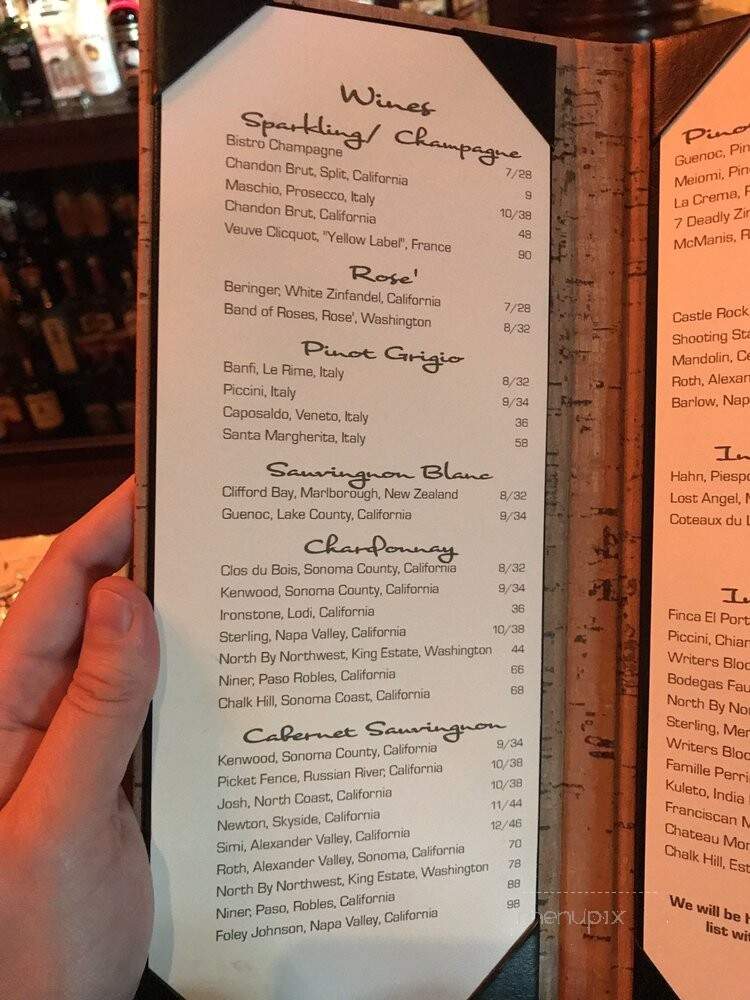 Wines
Sparkling/ Champagne
Bistro Champagne 7/28
Chandon Brut, Split, California 9
Maschio, Prosecco, Italy 10/38
Chandon Brut, California 48
Veuve Clicquot, "Yellow Label", France 90
Rose'
Beringer, White Zinfandel, California 7/28
Band of Roses, Rose', Washington 8/32
Pinot Grigio
Banfi, Le Rime, Italy 8/32
Piccini, Italy 9/34
Caposaldo, Veneto, Italy 36
Santa Margherita, Italy 58
Sauvingnon Blanc
Clifford Bay, Marlborough, New Zealand 8/32
Guenoc, Lake County, California 9/34
Chardonnay
Clos du Bois, Sonoma County, California 8/32
Kenwood, Sonoma County, California 9/34
Ironstone, Lodi, California 36
Sterling, Napa Valley, California 10/38
North By Northwest, King Estate, Washington 44
Niner, Paso Robles, California 66
Chalk Hill, Sonoma Coast, California 68
Cabernet Sauvingnon
Kenwood, Sonoma County, California 9/34
Picket Fence, Russian River, California 10/38
Josh, North Coast, California 10/38
Newton, Skyside, California 11/44
Simi, Alexander Valley, California 12/46
Roth, Alexander Valley, Sonoma, California 70
North By Northwest, King Estate, Washington 78
Niner, Paso, Robles, California 88
Foley Johnson, Napa Valley, California 98
Pino
Guenoc, Pin
Meiomi, Pin
La Crema, P
7 Deadly Zin
McManis, R
Castle Rock
Shooting Sta
Mandolin, Ce
Roth, Alexan
Barlow, Nap
In
Hahn, Piespo
Lost Angel, M
Coteaux du L
In
Finca El Port
Piccini, Chian
Writers Bloc
Bodegas Fau
North By Nor
Sterling, Mer
Writers Bloc
Famille Perri
Kuleto, India
Franciscan M
Chateau Mon
Chalk Hill, Est
We will be h
list wit
menupix